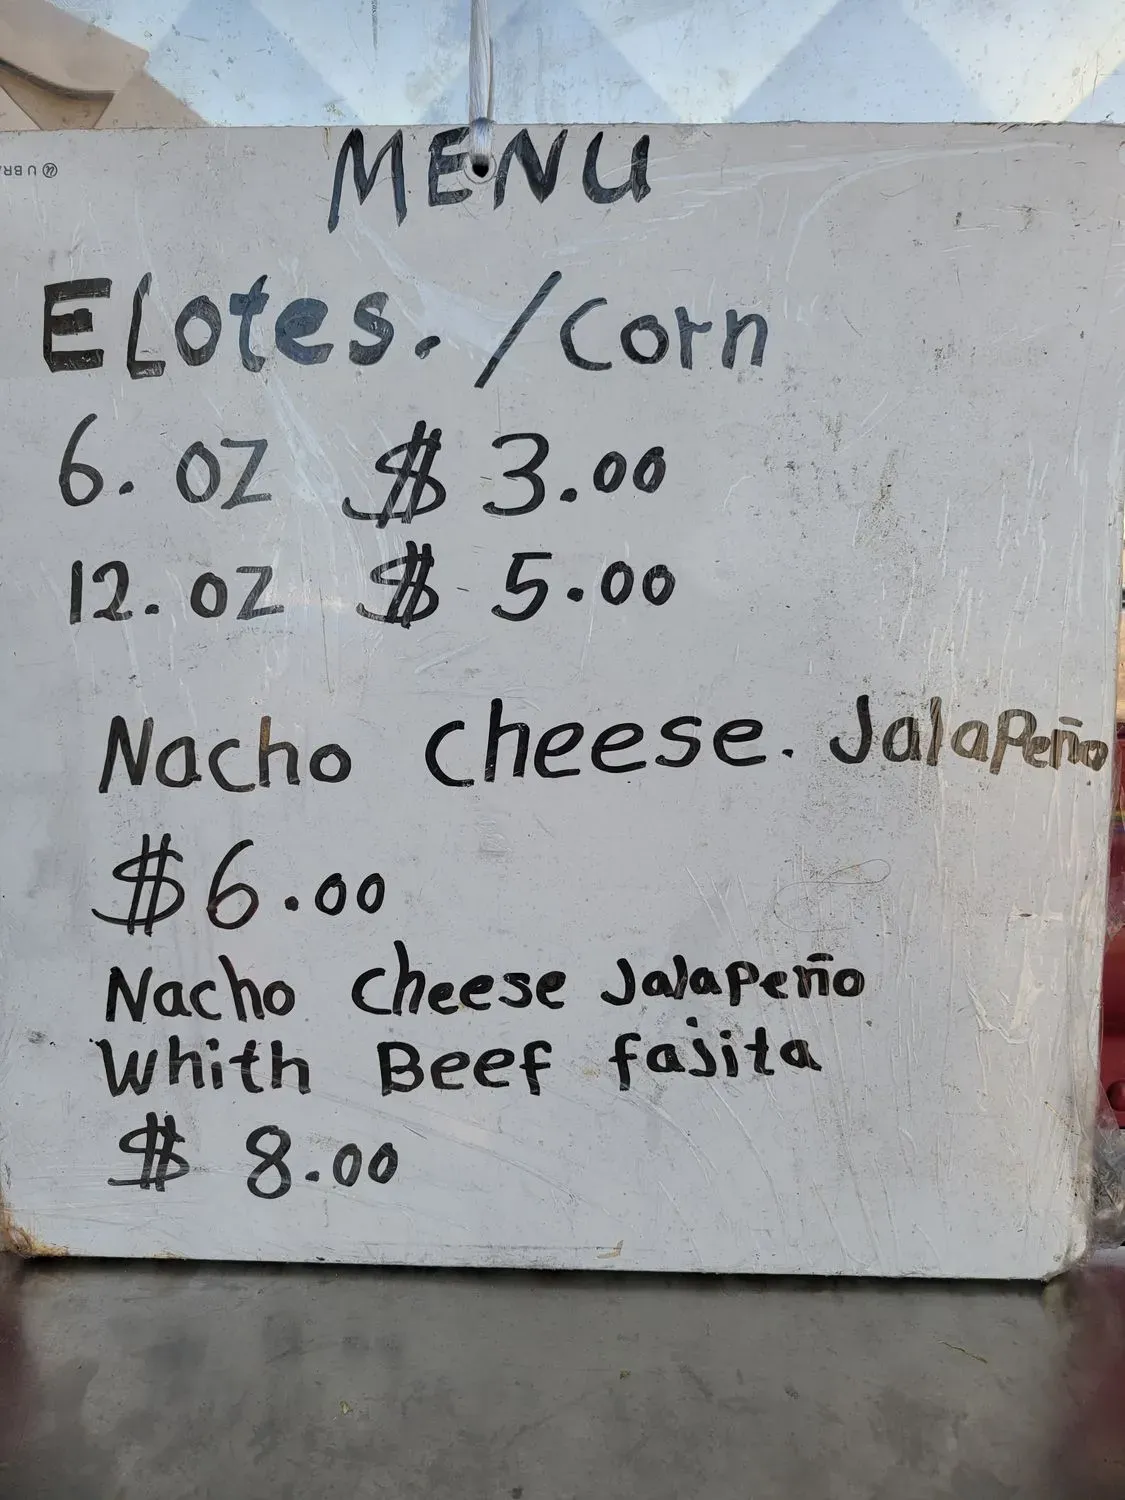 MENU
ELotes. /Corn
6. OZ $ 3.00
12. OZ $ 5.00
Nacho cheese. JalaPeño
$6.00
Nacho cheese JalaPeño
Whith Beef fajita
$ 8.00